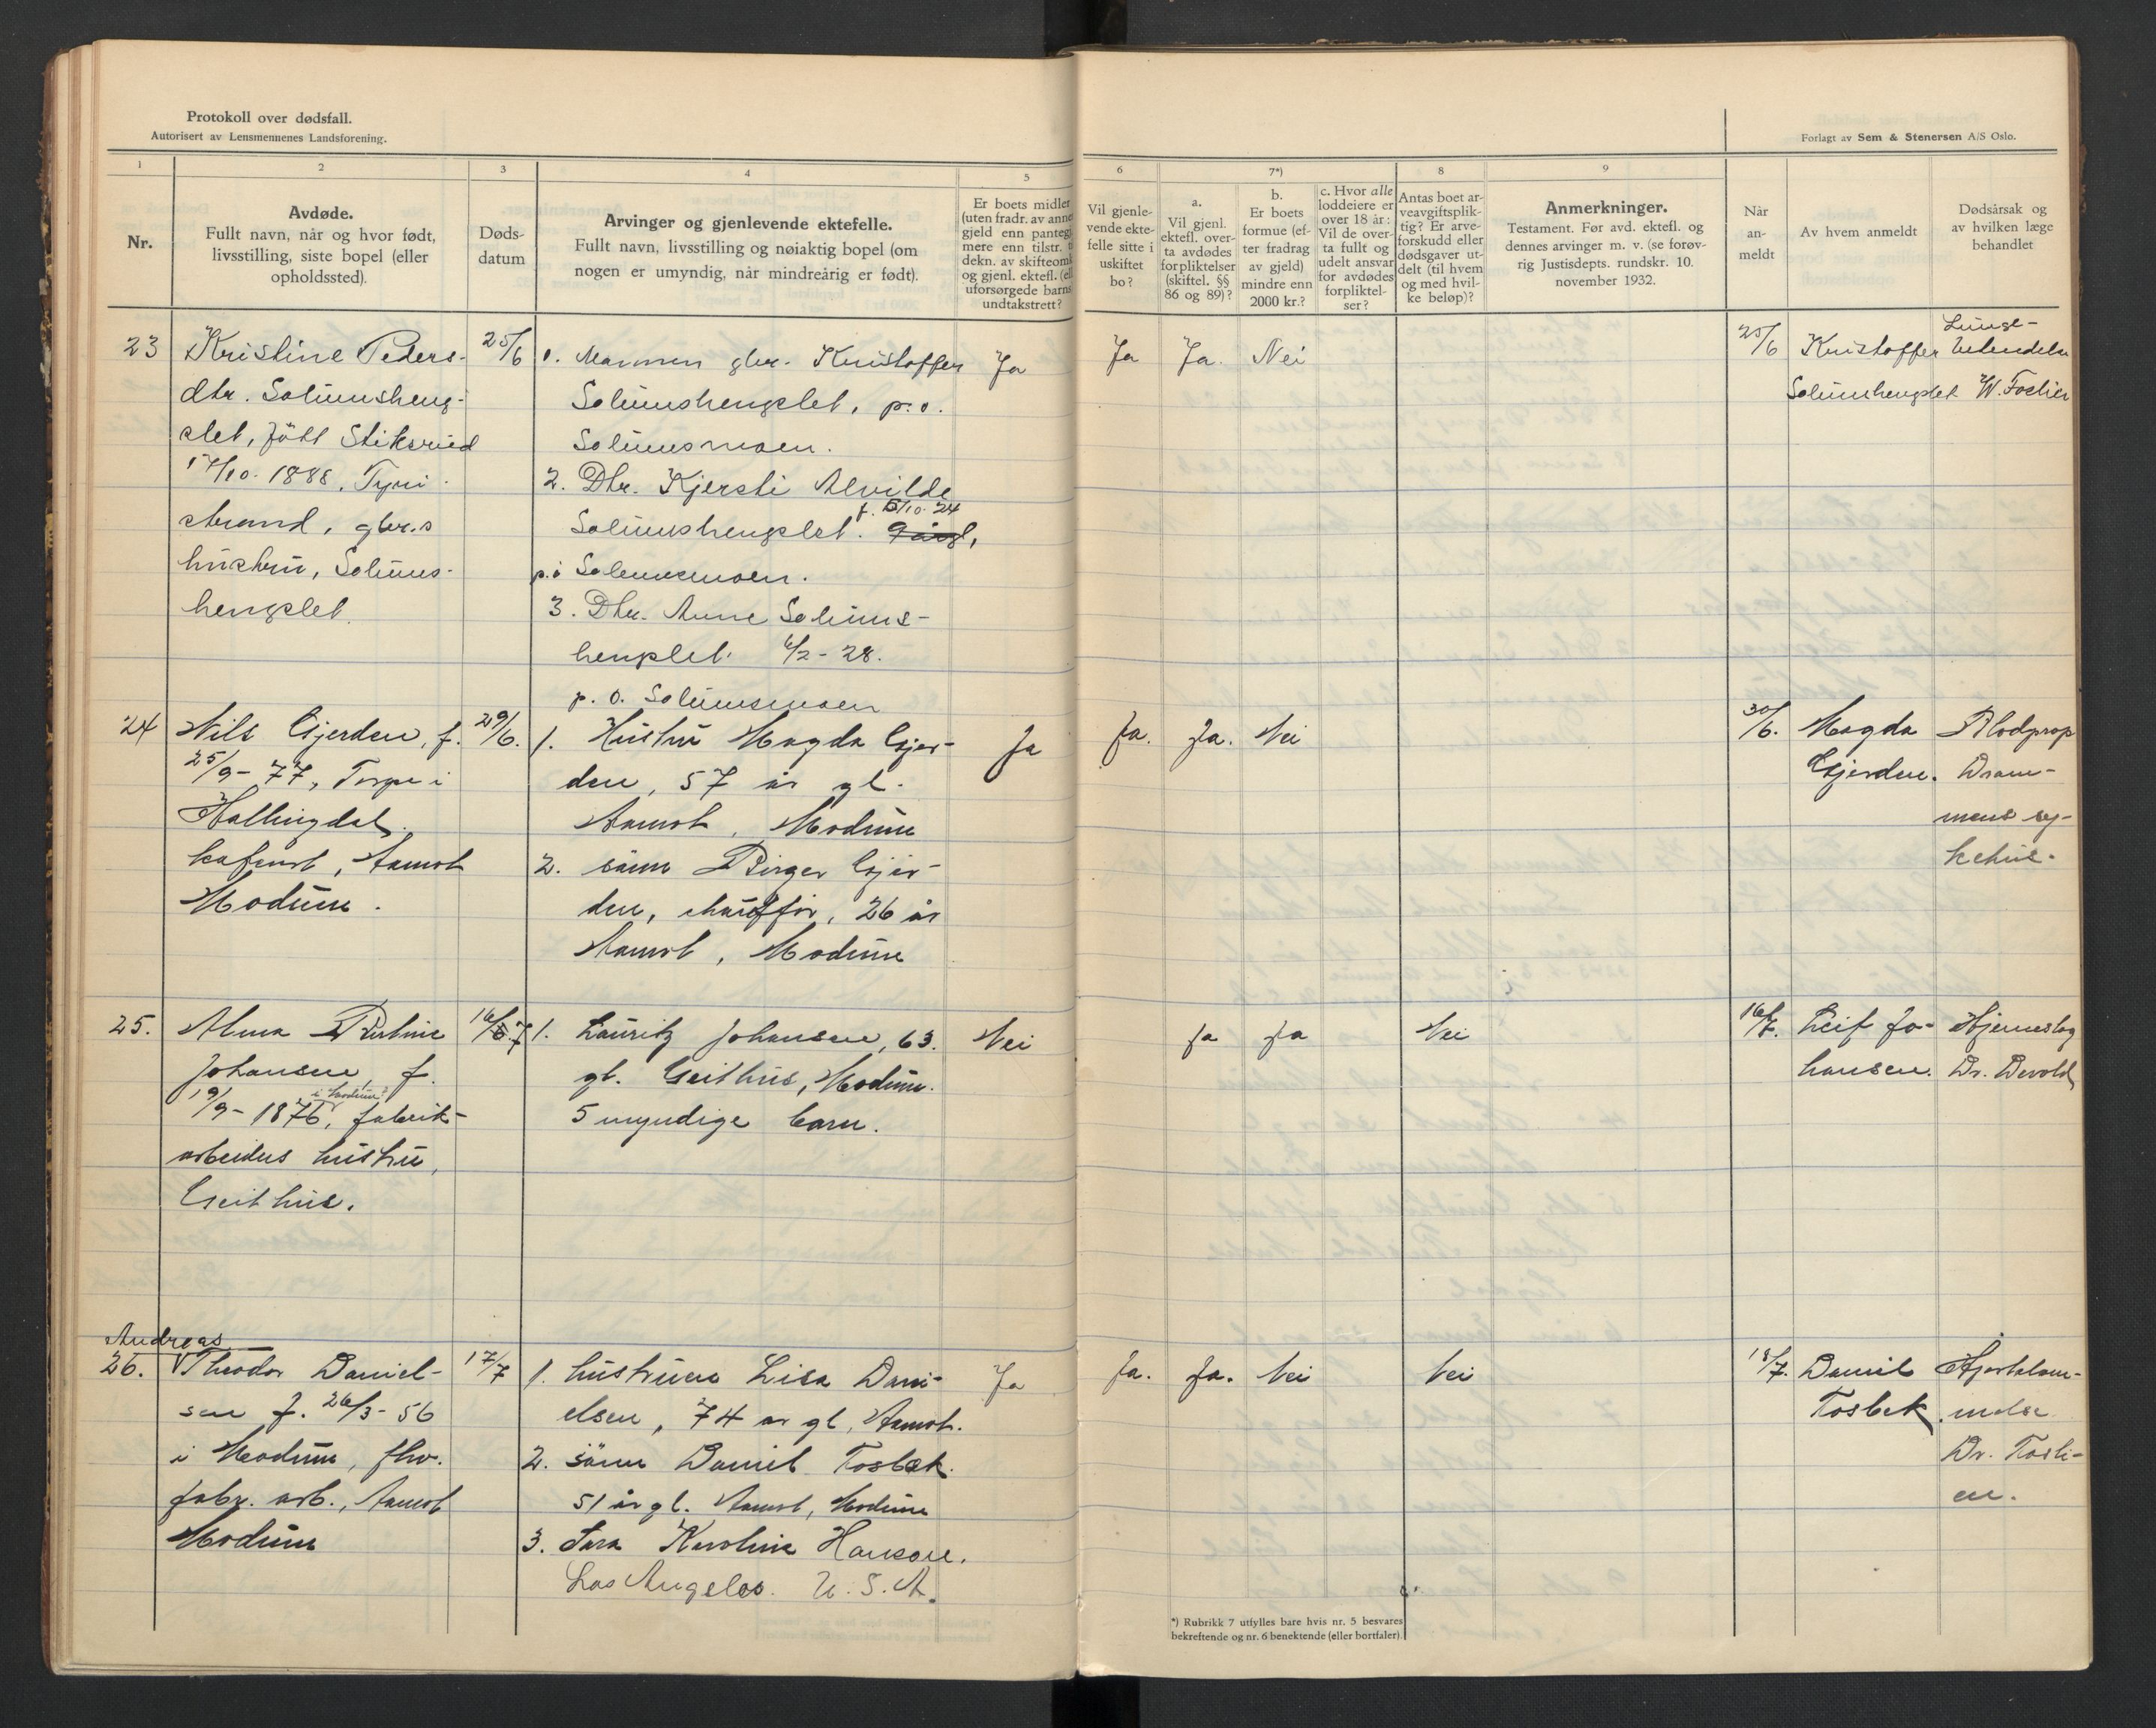 Protokoll over dødsfall.
Autorisert av Lensmennenes Landsforening.
Forlagt av Sem & Stenersen A/S Oslo.
1
2
3
4
5
6
7*)
8
9
Nr.
Avdøde.
Fullt navn, når og hvor født,
livsstilling, siste bopel (eller
opholdssted).
Døds-
datum
Arvinger og gjenlevende ektefelle.
Fullt navn, livsstilling og nøiaktig bopel (om
nogen er umyndig, når mindreårig er født).
Er boets midler
(uten fradr. av
gjeld enn
mere enn tilstr.
dekn. av
og gjenl. ektefl.
uforsørgede barns
undtakstrett?
Vil gjenle-
vende ekte-
felle sitte i
uskiftet
bo?
a.
Vil gjenl.
ektefl. over-
ta avdødes
forpliktelser
(skiftel. §§
86 og 89)?
b.
Er boets
formue (ef-
ter fradrag
av gjeld)
mindre enn
2000 kr.?
c. Hvor alle
loddeiere er
over 18 år:
Vil de over-
ta fullt og
udelt ansvar
for avdødes
forpliktel-
ser?
Antas boet ar-
veavgiftsplik-
tig? Er arve-
forskudd eller
dødsgaver ut-
delt (til hvem
og med hvil-
ke beløp)?
Anmerkninger.
Testament. Før avd. ektefl. og
dennes arvinger m. v. (se forøv-
rig Justisdepts. rundskr. 10.
november 1932.
Når
an-
meldt
Av hvem anmeldt
Dødsårsak og
av hvilken læge
behandlet
23
Kristine Peders-
dtr. Solumsheng-
slet, født Stiksrud
17/10. 1888, Tyri-
strand, gbr.s
hustru, Solums-
hengslet.
25/6
1. Mannen gbr. Kristoffer
Solumshengslet, p.o.
Solumsmoen.
2. Dtr. Kjersti Alvilde
f. 5/10. 24
Solumshengslet. 9 årgl,
p.o Solumsmoen.
3. Dtr. Anne Solums-
hengslet. 6/2 - 28.
p. o. Solumsmoen
Ja
Ja
Ja.
Nei
25/6
Kristoffer
Solumshengslet
Lunge-
betendelse
W. Foslien
24
Nils Gjerden, f.
25/9 - 77, Torpe i
Hallingdal,
kafevert, Aamot
Modum.
29/6.
1. Hustru Magda Gjer-
den, 57 år gl.
Aamot, Modum
2. sønn Birger Gjer-
den, chauffør, 26 år
Aamot, Modum
Ja
Ja.
Ja.
Nei
30/6.
Magda
Gjerden.
Blodprop
Dram-
mens sy-
kehus.
25.
Alma Rubine
Johansen, f.
i Modum
19/9 - 1876, fabrik-
arbeiders hustru,
Geithus.
16/7
1. Lauritz Johansen, 63.
gl. Geithus, Modum.
5 myndige barn.
Nei
Ja
Ja
Nei
16/7.
Leif Jo-
hansen.
Hjerneslag
Dr. Devold
Andreas
26.
Theodor Daniel-
sen f. 26/3 - 56
i Modum, fhv.
fabr. arb., Aamot
Modum
17/7
1. hustruen Lisa Dani-
elsen, 74 år gl, Aamot.
2. sønn Daniel Fosbek.
51 år gl. Aamot, Modum
3. Sara Karoline Hansen.
Los Angelos. U. S. A.
Ja
Ja.
Ja.
Nei
Nei
18/7.
Daniel
Fosbek
Hjertelam-
melse
Dr. Fosli-
en.
*) Rubrikk 7 utfylles bare hvis nr. 5 besvares
bekreftende og nr. 6 benektende (eller bortfaler).